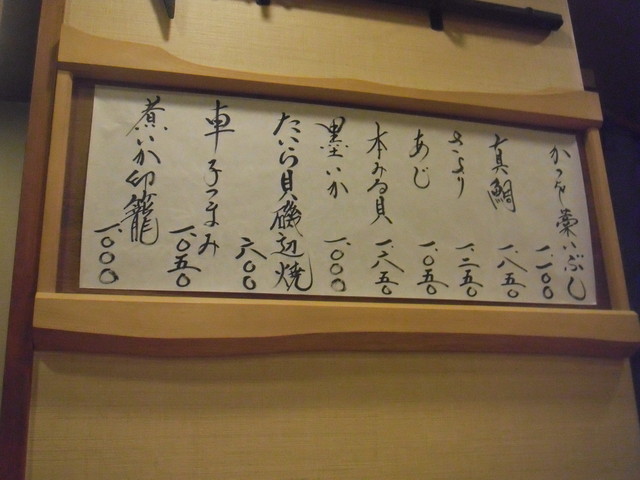 かつを藁いぶし
一、一〇〇
真鯛
一、八五〇
さより
一、二五〇
あじ
一、〇五〇
本みる貝
一、六八五〇
墨いか
一、〇〇〇
たいら貝磯辺焼
六〇〇
車子つまみ
一、〇五〇
煮いか印籠
一、〇〇〇